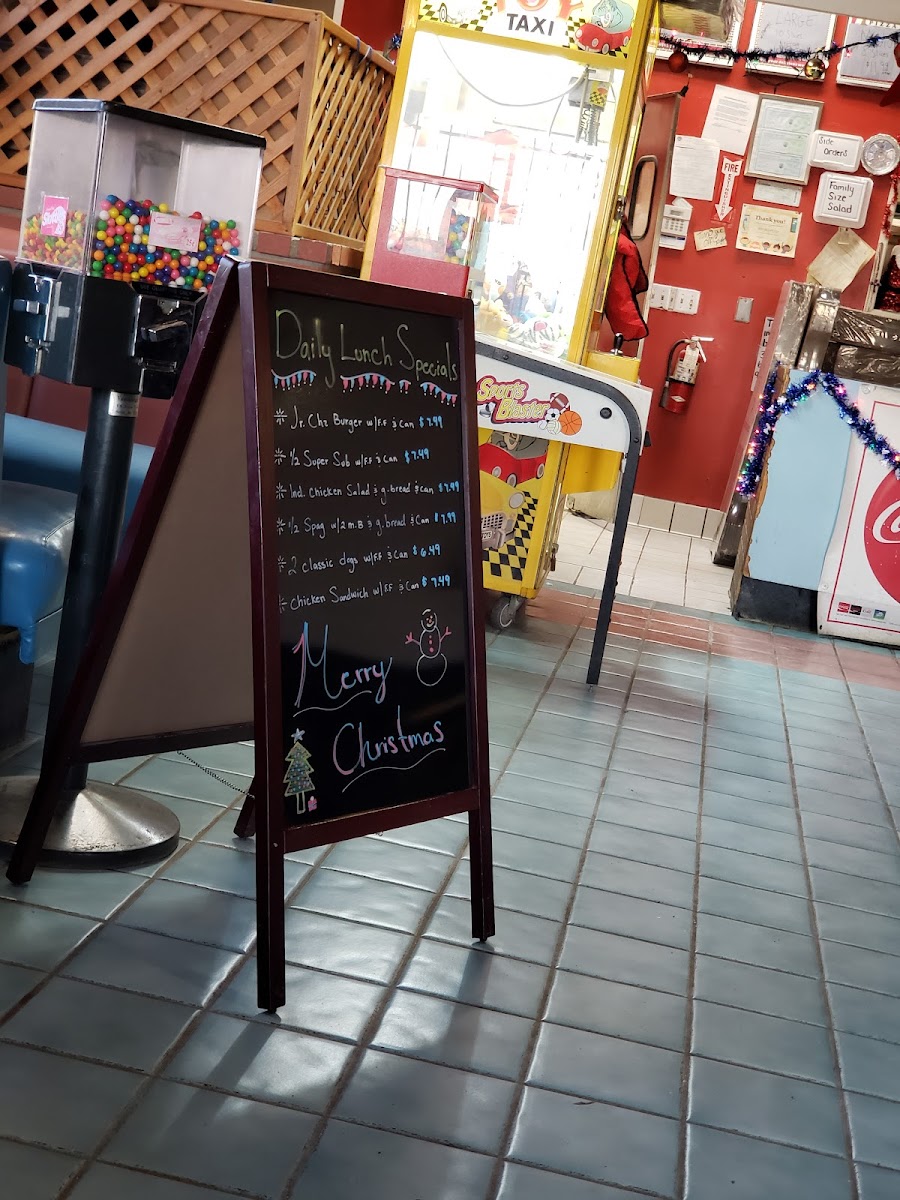 Daily Lunch Specials
Jr. Chz Burger w/F.F & Can $7.99
1/2 Super Sub w/F.F & Can $7.49
Ind. Chicken Salad & g.bread & Can $7.99
1/2 Spag w/2 m.B & g.bread & Can $7.99
2 classic dogs w/F.F & Can $6.49
Chicken Sandwich w/F.F & Can $7.49
Merry
Christmas
TAXI
Sports
Blaster
LARGE
FIRE
Side
Orders
Family
Size
Salad
Thank you!
25¢